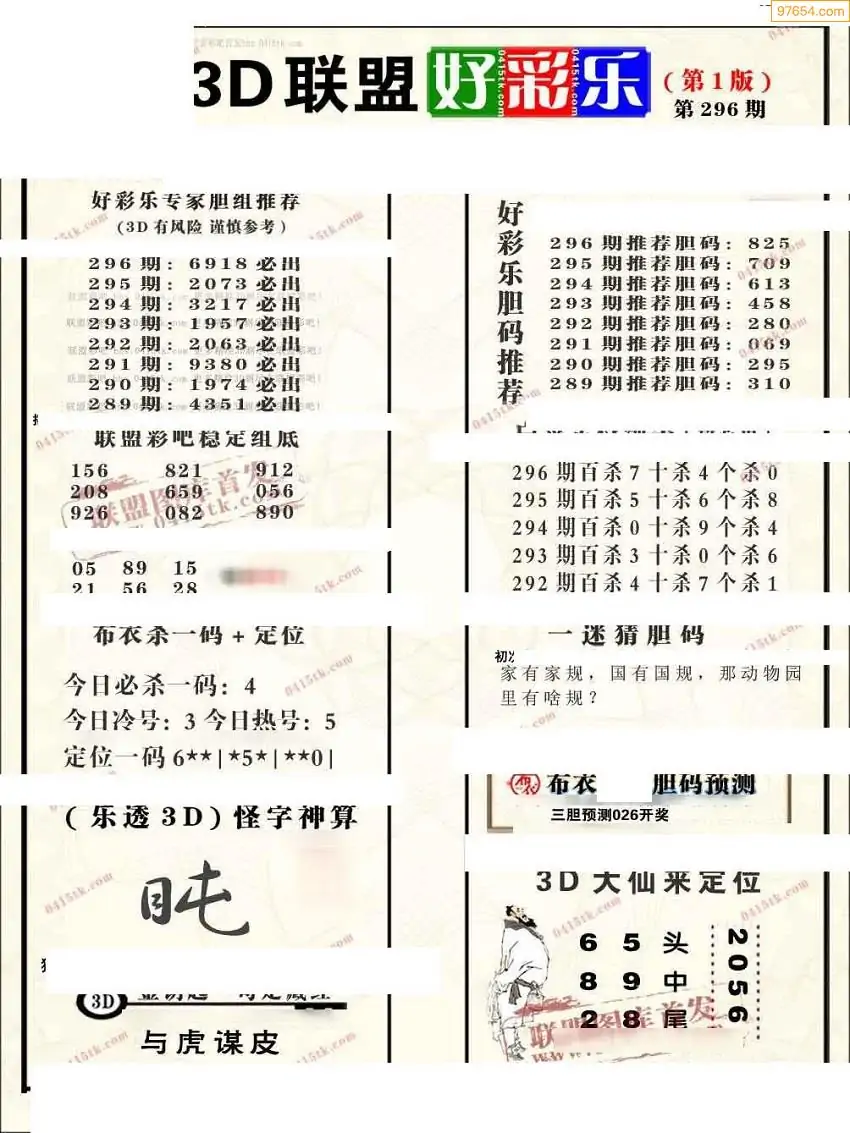 97654.com
3D联盟好彩乐(第1版)
第296期
好彩乐专家胆组推荐
(3D有风险 谨慎参考)
296期: 6918必出
295期: 2073必出
294期: 3217必出
293期: 1957必出
292期: 2063必出
291期: 9380必出
290期: 1974必出
289期: 4351必出
联盟彩吧稳定组底
156 821 912
208 659 056
926 082 890
05 89 15
21 56 28
布衣杀一码+定位
今日必杀一码: 4
今日冷号: 3 今日热号: 5
定位一码6**|*5*|**0|
(乐透3D)怪字神算
3D
与虎谋皮
好彩乐胆码推荐
296期推荐胆码: 825
295期推荐胆码: 709
294期推荐胆码: 613
293期推荐胆码: 458
292期推荐胆码: 280
291期推荐胆码: 069
290期推荐胆码: 295
289期推荐胆码: 310
296期百杀7十杀4个杀0
295期百杀5十杀6个杀8
294期百杀0十杀9个杀4
293期百杀3十杀0个杀6
292期百杀4十杀7个杀1
一迷猜胆码
家有家规，国有国规，那动物园
里有啥规？
布衣 胆码预测
三胆预测026开奖
3D大仙来定位
6 5 头
8 9 中
2 8 尾
2056
联盟图库首发
0415tk.com